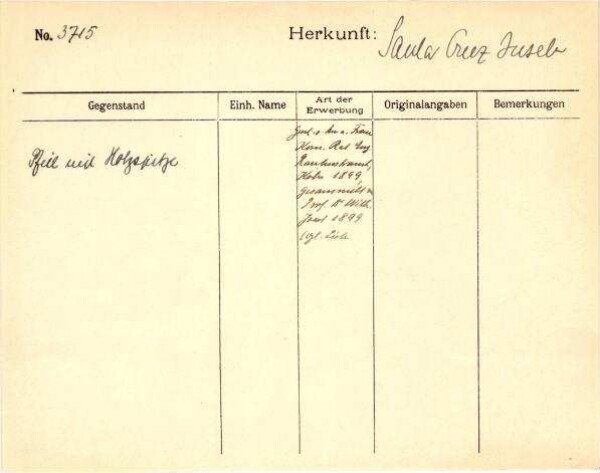 No. 3715 Herkunft: Santa Cruz Inseln
Gegenstand Einh. Name Art der Erwerbung Originalangaben Bemerkungen
Pfeil mit Holzspitze
Gesch. v. Hrn u. Frau
Kom. Rat Eug.
Rautenstrauch,
Köln 1899,
gesammelt v.
Prof. Dr. Wilh.
Joest 1899
(vgl. Liste